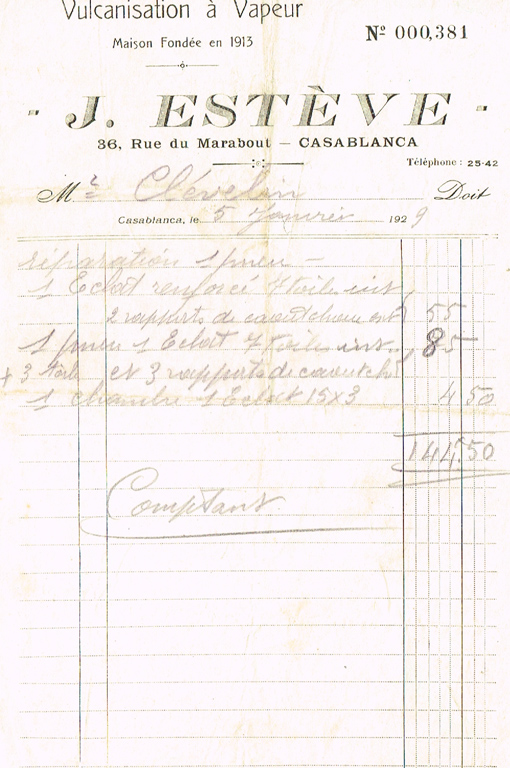 Vulcanisation à Vapeur
Maison Fondée en 1913
Nº 000,381
- J. ESTÈVE -
36, Rue du Marabout – CASABLANCA
Téléphone : 25-42
Mr Clévelin Doit
Casablanca, le 5 Janvier 1929
réparation 1 pneu –
1 Eclat renforcé 7 toiles int
2 rapports de caoutchouc ext 55
1 pneu 1 Eclat 7 toiles int. 85
+ 3 toile et 3 rapports de caoutcho
1 chambre 1 Eclat 15x3 4 50
144.50
Comptant